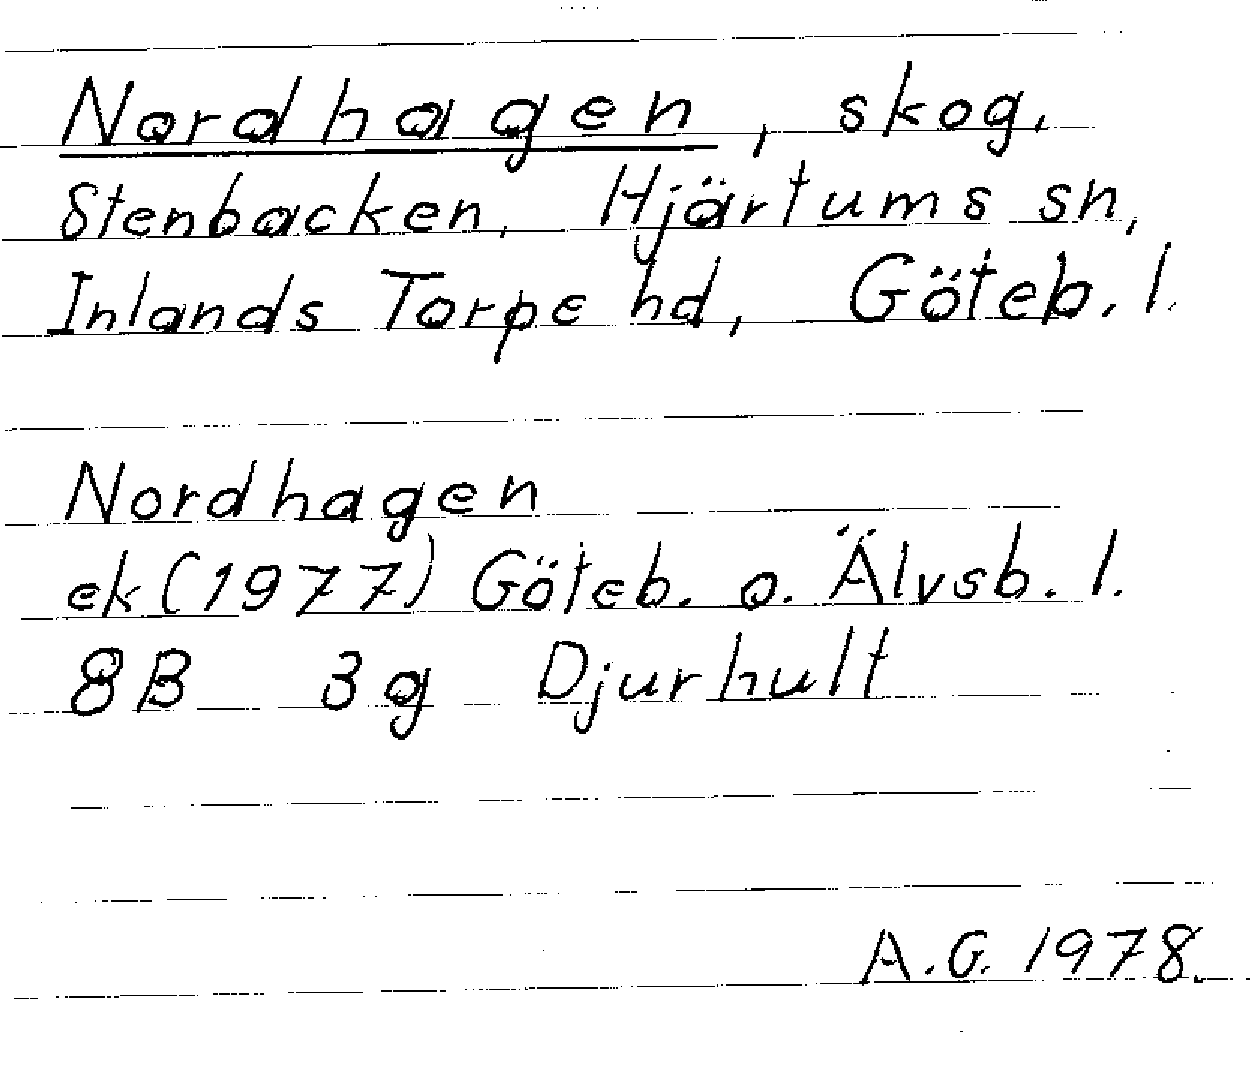 Nordhagen, skog.
Stenbacken, Hjärtums sn,
Inlands Torpe hd, Göteb. l.
Nordhagen
ek (1977) Göteb. o. Älvsb. l.
8B 3g Djurhult
A.G. 1978.